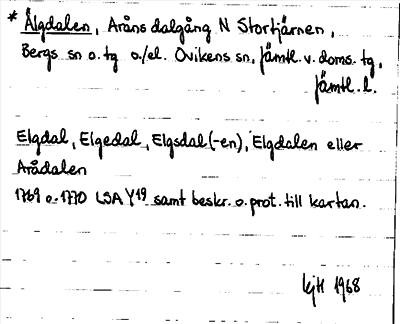 * Älgdalen, Aråns dalgång N Stortjärnen,
Bergs sn o. tg o./el. Ovikens sn, Jämtl. v. doms. tg,
Jämtl. l.
Elgdal, Elgedal, Elgsdal(-en), Elgdalen eller
Arådalen
1769 o. 1770 LSA Y19 samt beskr. o. prot. till kartan.
1968